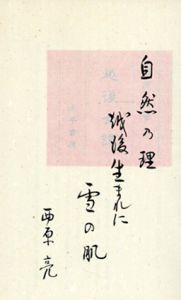 自然乃理
越後生まれに
雪の肌
西原亮